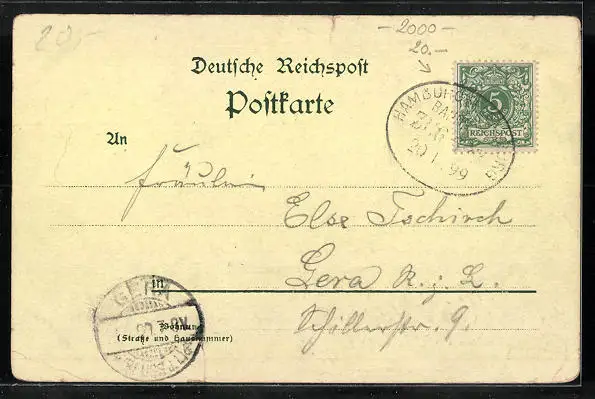 20.-
- 2000 -
20.-
Deutsche Reichspost
Postkarte
5
REICHSPOST
HAMBURG
BAHN
ZUG
20 1. 99
An
Fräulein
Else Tschirch
in
Gera R. j. L.
GERA
Wohnung
(Straße und Hausnummer)
Schillerstr. 9.